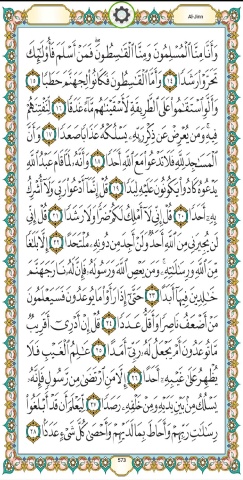 Al-Jinn
وَأَنَّا مِنَّا الْمُسْلِمُونَ وَمِنَّا الْقَاسِطُونَ فَمَنْ أَسْلَمَ فَأُولَٰئِكَ
تَحَرَّوْا رَشَدًا ﴿١٤﴾ وَأَمَّا الْقَاسِطُونَ فَكَانُوا لِجَهَنَّمَ حَطَبًا ﴿١٥﴾
وَأَن لَّوِ اسْتَقَامُوا عَلَى الطَّرِيقَةِ لَأَسْقَيْنَاهُم مَّاءً غَدَقًا ﴿١٦﴾ لِّنَفْتِنَهُمْ
فِيهِ وَمَن يُعْرِضْ عَن ذِكْرِ رَبِّهِ يَسْلُكْهُ عَذَابًا صَعَدًا ﴿١٧﴾ وَأَنَّ
الْمَسَاجِدَ لِلَّهِ فَلَا تَدْعُوا مَعَ اللَّهِ أَحَدًا ﴿١٨﴾ وَأَنَّهُ لَمَّا قَامَ عَبْدُ اللَّهِ
يَدْعُوهُ كَادُوا يَكُونُونَ عَلَيْهِ لِبَدًا ﴿١٩﴾ قُلْ إِنَّمَا أَدْعُو رَبِّي وَلَا أُشْرِكُ
بِهِ أَحَدًا ﴿٢٠﴾ قُلْ إِنِّي لَا أَمْلِكُ لَكُمْ ضَرًّا وَلَا رَشَدًا ﴿٢١﴾ قُلْ إِنِّي
لَن يُجِيرَنِي مِنَ اللَّهِ أَحَدٌ وَلَنْ أَجِدَ مِن دُونِهِ مُلْتَحَدًا ﴿٢٢﴾ إِلَّا بَلَاغًا
مِّنَ اللَّهِ وَرِسَالَاتِهِ وَمَن يَعْصِ اللَّهَ وَرَسُولَهُ فَإِنَّ لَهُ نَارَ جَهَنَّمَ
خَالِدِينَ فِيهَا أَبَدًا ﴿٢٣﴾ حَتَّىٰ إِذَا رَأَوْا مَا يُوعَدُونَ فَسَيَعْلَمُونَ
مَنْ أَضْعَفُ نَاصِرًا وَأَقَلُّ عَدَدًا ﴿٢٤﴾ قُلْ إِنْ أَدْرِي أَقَرِيبٌ
مَّا تُوعَدُونَ أَمْ يَجْعَلُ لَهُ رَبِّي أَمَدًا ﴿٢٥﴾ عَالِمُ الْغَيْبِ فَلَا
يُظْهِرُ عَلَىٰ غَيْبِهِ أَحَدًا ﴿٢٦﴾ إِلَّا مَنِ ارْتَضَىٰ مِن رَّسُولٍ فَإِنَّهُ
يَسْلُكُ مِن بَيْنِ يَدَيْهِ وَمِنْ خَلْفِهِ رَصَدًا ﴿٢٧﴾ لِّيَعْلَمَ أَن قَدْ أَبْلَغُوا
رِسَالَاتِ رَبِّهِمْ وَأَحَاطَ بِمَا لَدَيْهِمْ وَأَحْصَىٰ كُلَّ شَيْءٍ عَدَدًا ﴿٢٨﴾
573